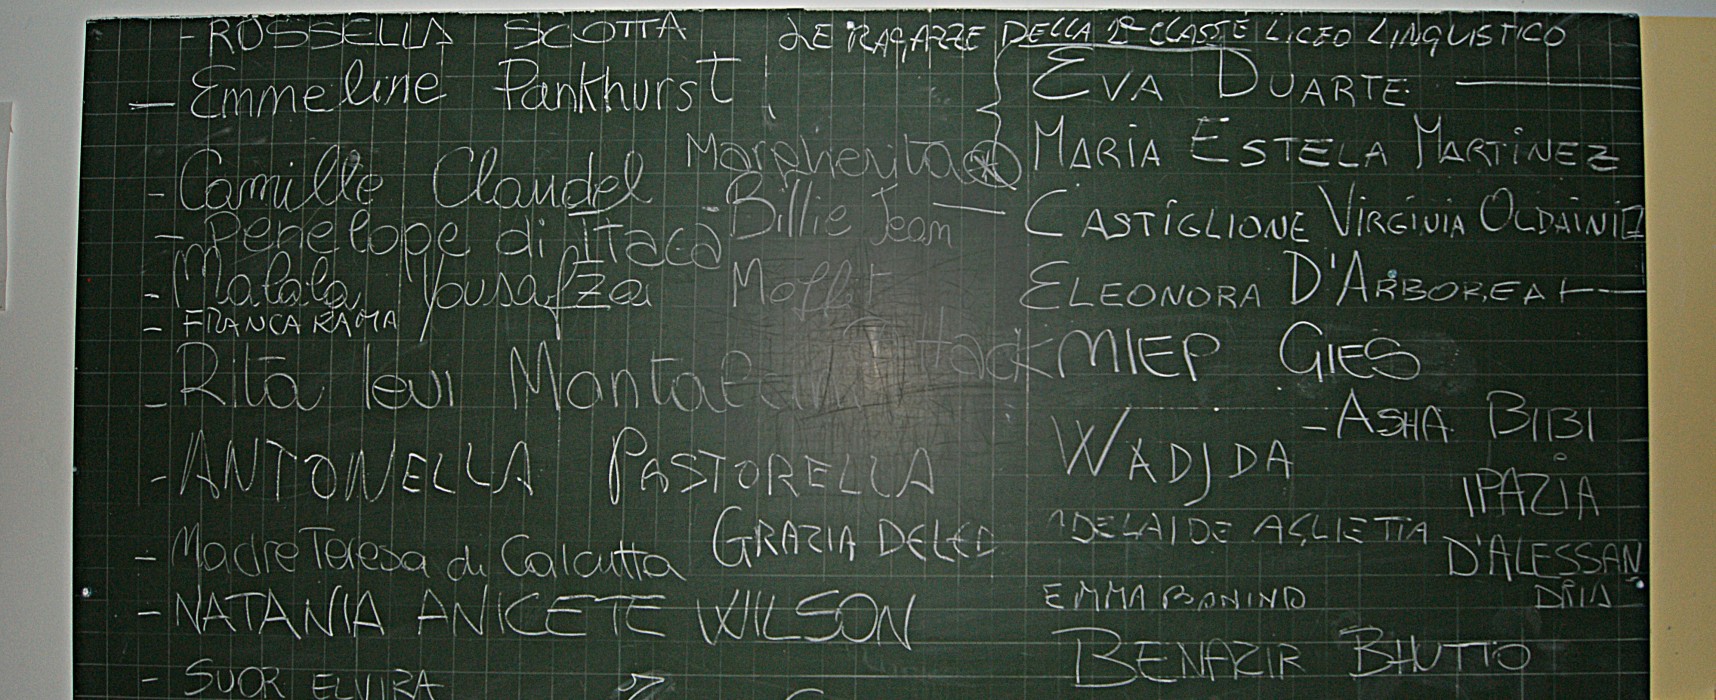 - ROSSELLA SCOTTA
LE RAGAZZE DELLA 2ª CLASSE LICEO LINGUISTICO
- Emmeline Pankhurst
EVA DUARTE
MARIA ESTELA MARTINEZ
- Camille Claudel
Margherita
- Billie Jean
Moffit
CASTIGLIONE VIRGINIA OLDAINI
- Penelope di Itaca
- Malala Yousafzai
ELEONORA D'ARBOREA
- FRANCA RAMA
- Rita levi Montalcini
Hack
MIEP GIES
- ASHA BIBI
WADJDA
- ANTONELLA PASTORELLA
IPAZIA
D'ALESSAN
DRIA
- Madre Teresa di Calcutta
GRAZIA DELED
ADELAIDE AGLIETTA
EMMA BONINO
- NATANIA ANICETE WILSON
BENAZIR BHUTTO
- SUOR ELVIRA